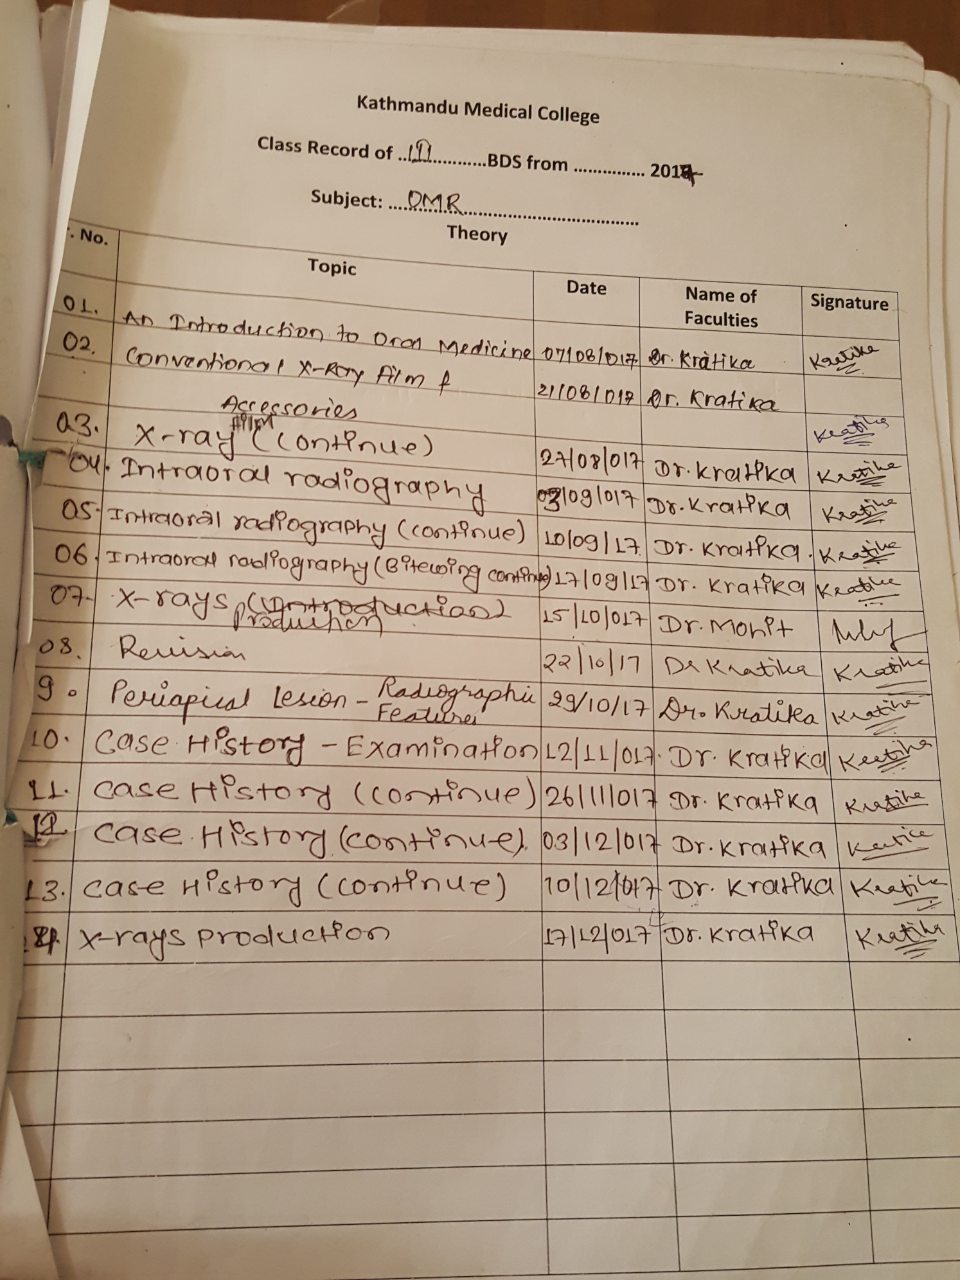 Kathmandu Medical College
Class Record of ..III............BDS from ............... 2017
Subject: ....OMR.......................................
Theory
. No. Topic Date Name of Faculties Signature
01. An Introduction to Oral Medicine 07/08/017 Dr. Kratika Kratika
02. Conventional X-Ray film & 21/08/017 Dr. Kratika
Accessories Kratika
03. X-ray film (continue) 27/08/017 Dr. Kratika Kratika
04. Intraoral radiography 03/09/017 Dr. Kratika Kratika
05. Intraoral radiography (continue) 10/09/17 Dr. Kratika. Kratika
06. Intraoral radiography (Bitewing continue) 17/09/17 Dr. Kratika Kratika
07. X-rays (Introduction) 15/10/017 Dr. Mohit
Production
08. Revision 22/10/17 Dr Kratika Kratika
9. Periapical Lesion - Radiographic Features 29/10/17 Dr. Kratika Kratika
10. Case History - Examination 12/11/017. Dr. Kratika Kratika
11. Case History (continue) 26/11/017 Dr. Kratika Kratika
12 Case History (continue). 03/12/017 Dr. Kratika Kratika
13. Case History (continue) 10/12/017 Dr. Kratika Kratika
X-rays production 17/12/017 Dr. Kratika Kratika